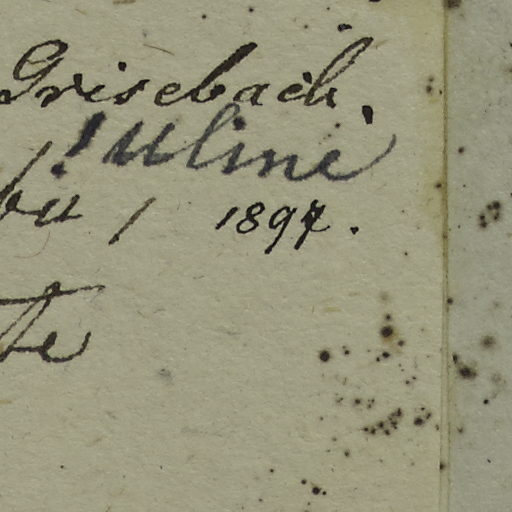 Grisebach.
! Uline
bu / 1897.
te